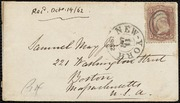 Rec'd. Oct. 14/62
NEW-YORK
Samuel May Jr
221 Washington Street
Boston
Massachusetts
U.S.A.